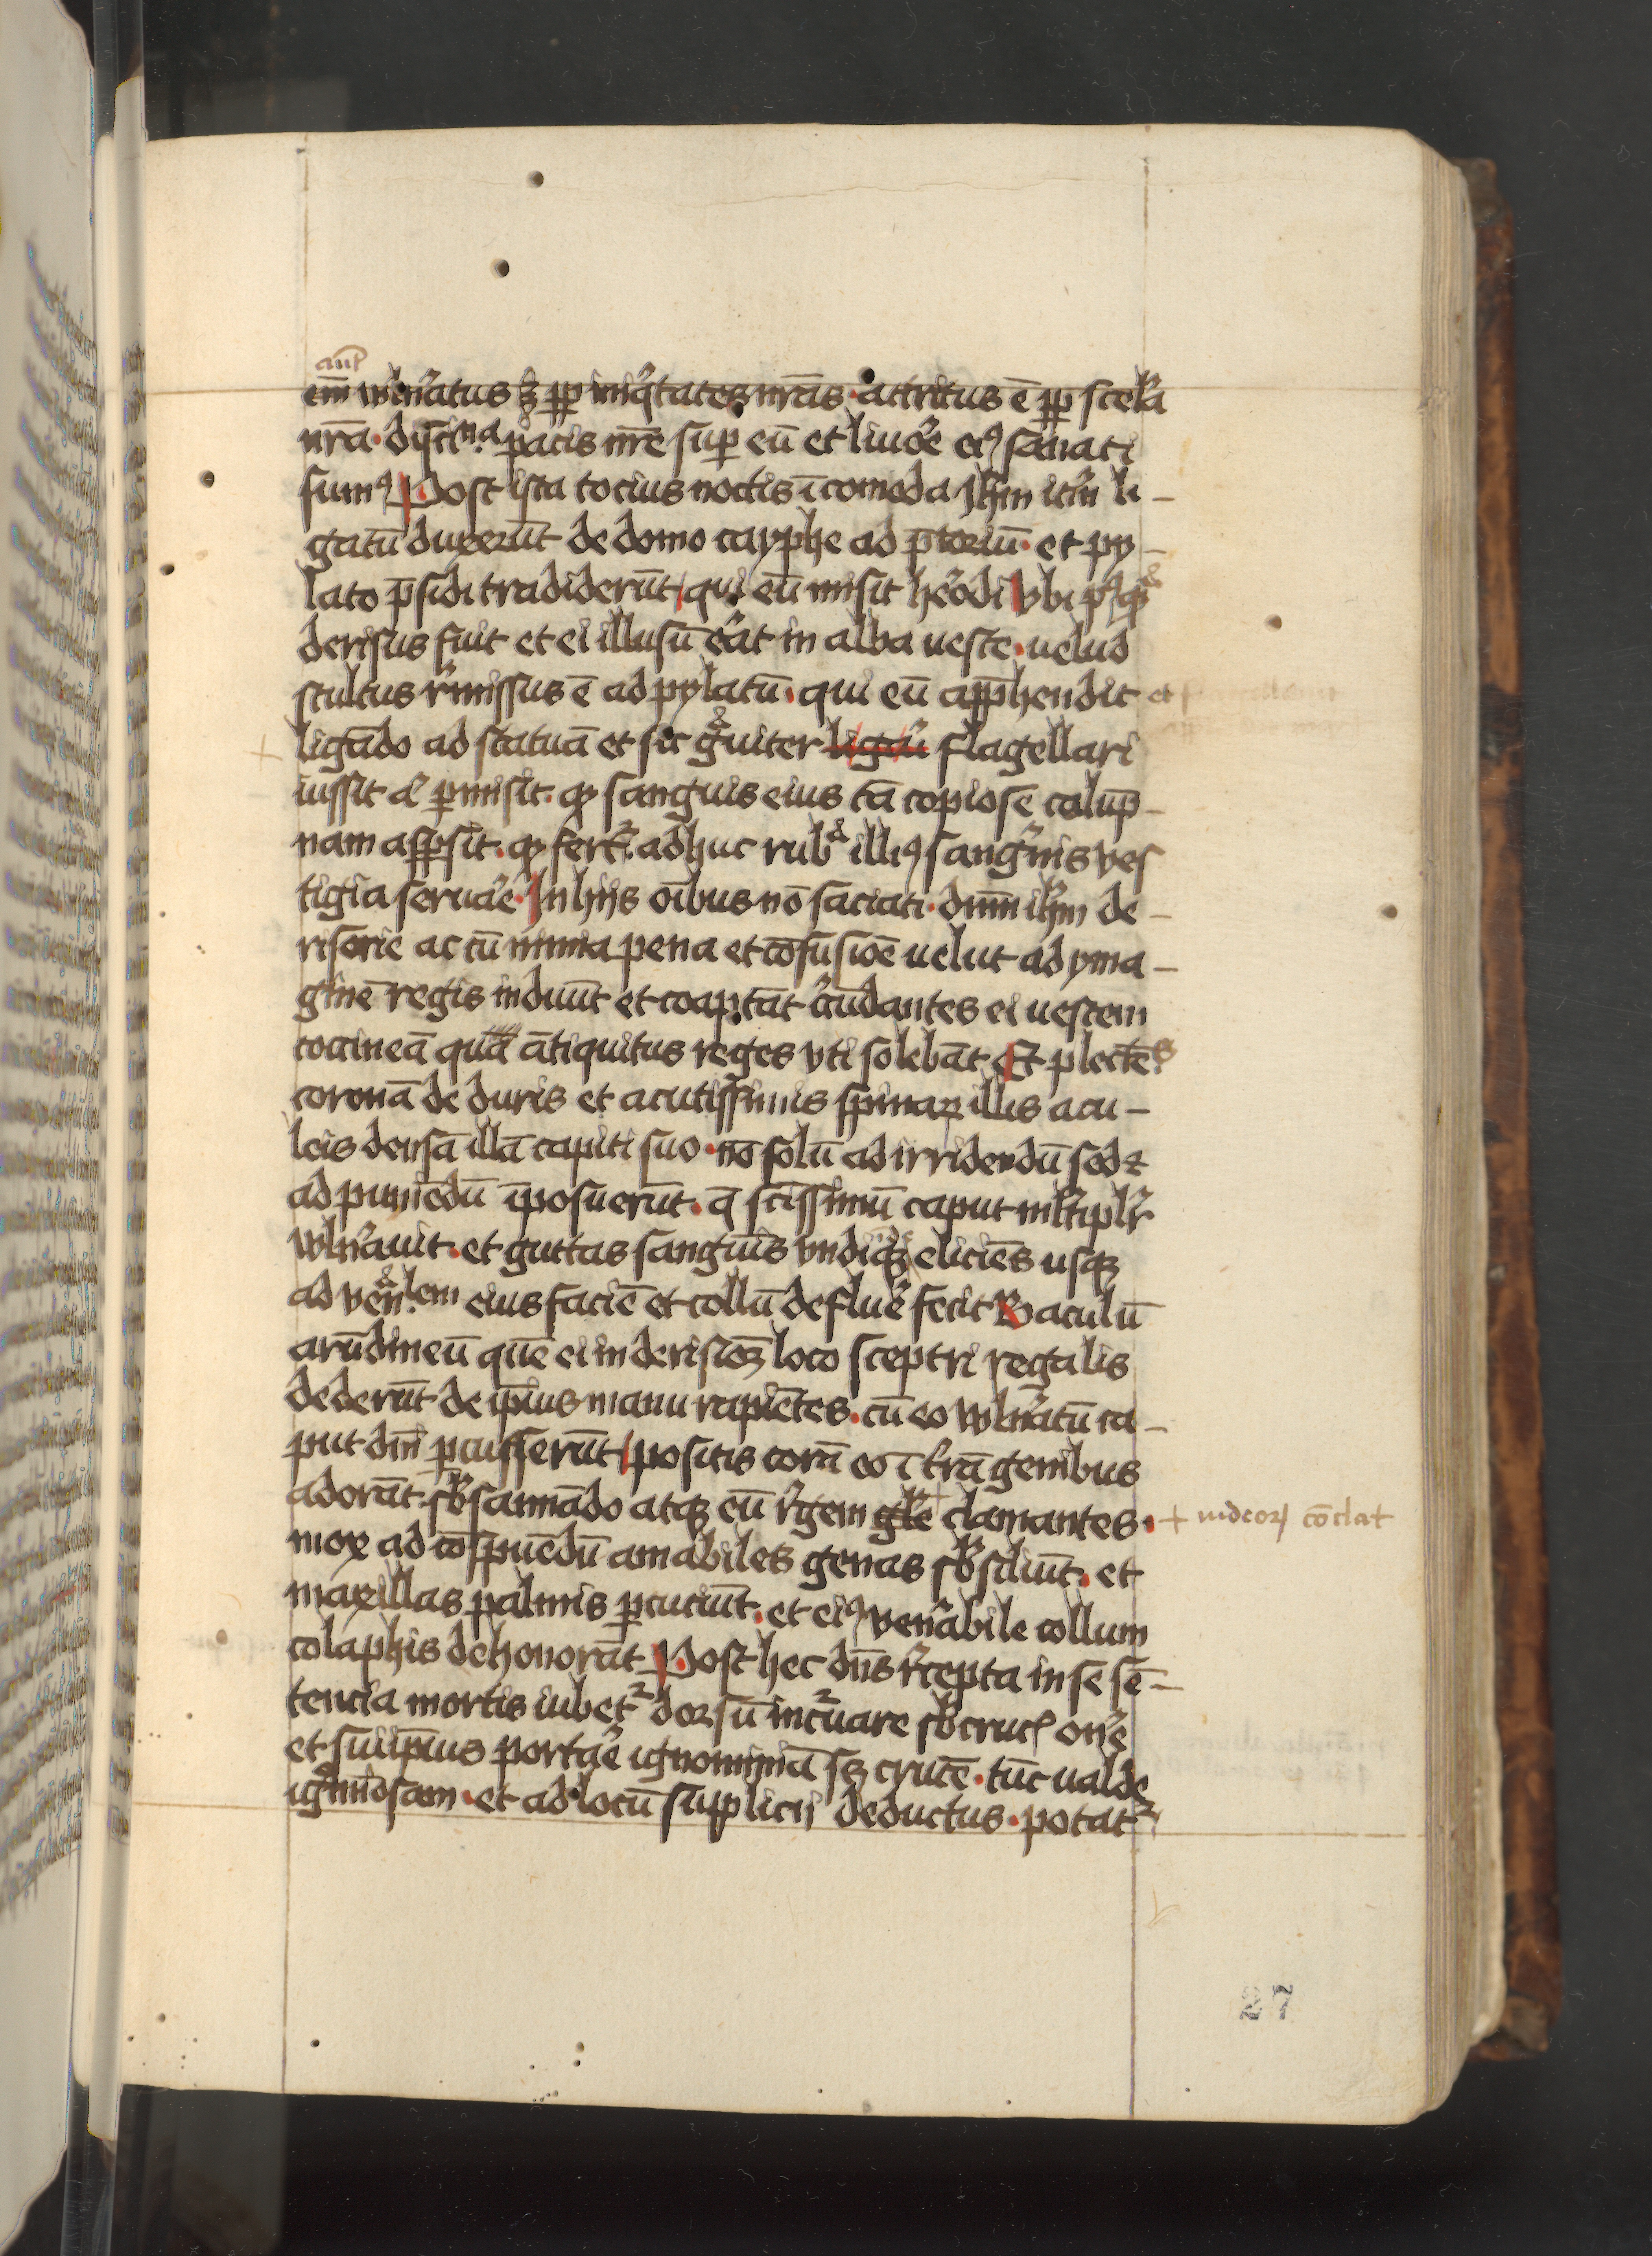 aut̄
em̄ vuln̾atus ꝫ ꝓp̄ iniq̾tates nr̄as · attritus ē ꝓp̄ scel̾a
nr̄a · dyscina pacis nr̄e suꝑ eū et liuor̾e eiꝰ sanati
sumꝰ Post ista tocius noctis īcomoda Jh̄m it̾m li–
gatū duxerūt de domo cayphe ad p̄toriū · et py–
lato p̄sidi tradiderūt qui eū misit herodi vbi
derisus fuit et ei illusū erat in alba ueste · uelud
stultus r̾missus ē ad pylatū · qui eū app̄hendit et
ligādo ad statuā et sic gͣuiter ligatū flagellari
iussit & ꝑmisit · ꝙ sanguis eius tā copiose colūp–
nam aspsit · ꝙ fertᷣ adhuc rubͣ illiꝰ sanguīs ves
tigia seruare · In hijs oībus nō saciati · dn̄m ih̄m de–
risorie ac cū nimia pena et cōfusiōe uelut ad yma–
ginē regis induūt et coaptāt c̾cūdantes ei uestem
coccineā qua ātiquitus reges vti solebāt Et plectētes
coronā de duris et acutissimis spinaꝝ illis acu–
leis densā illā capiti suo · nō solū ad irridendū sed ⁊
ad puniēdū īposuerūt · q̄ sc̄issimū caput ml̾tiplr̾
vuln̾auit · et guttas sanguīs vndiqꝫ eliciēs usqꝫ
ad ven̾alem eius faciē et collū defluer̾e fecit Baculū
arūdineū quē ei in derisioꝫ loco sceptri regalis
dederūt de ip̄ius manu rapiētes · cū eo vuln̾atū ca–
put dn̄i ꝑcusserūt positis corā eo ī t̾rā genibus
adorāt sb̾sannādo atqꝫ eū r̾gem gl̄e clamantes · + iudeoꝝ cōclat
mox ad cōspuēdū amabiles genas sb̾siliūt · et
maxillas palmis ꝑcuciūt · et eiꝰ ven̾abile collum
colaphis dehonorāt Post hec dn̄s r̾cepta in se sē–
tencia mortis iubetᷣ dorsū incuruare sb̾ crucꝭ on̾e
et sui ip̄ius portare ignominiā sꝫ crucē · tūc ualde
ignomīosam · et ad locū supplicii deductus · potatᷣ
27